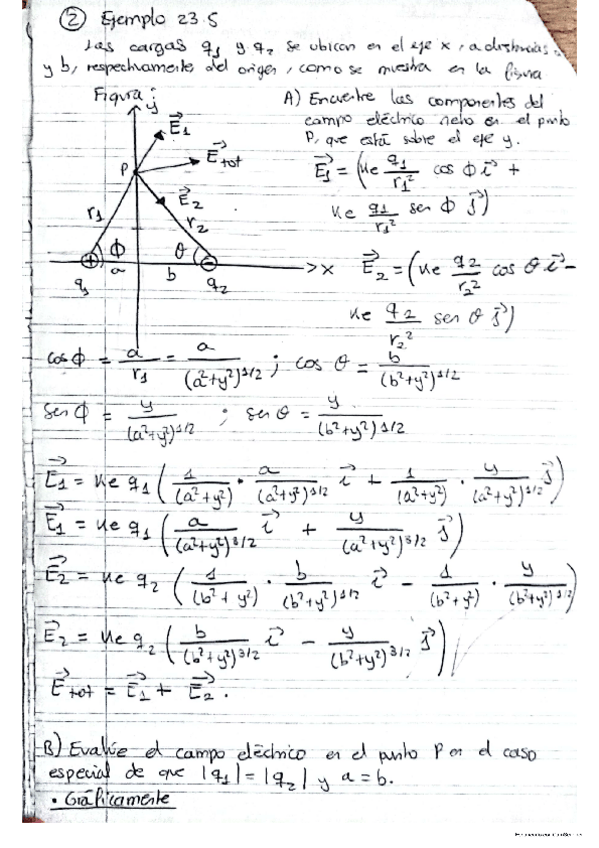 ② Ejemplo 23.5
Las cargas q1 y q2 se ubican en el eje x, a distancias a
y b, respectivamente del origen, como se muestra en la figura
Figura:
y
E⃗1
E⃗tot
P
E⃗2
r1
r2
Φ
θ
a
b
x
q1
q2
A) Encuentre las componentes del
campo eléctrico neto en el punto
P, que está sobre el eje y.
E⃗1 = (Ke q1/r1² cos Φ i⃗ +
Ke q1/r1² sen Φ j⃗)
E⃗2 = (Ke q2/r2² cos θ i⃗ −
Ke q2/r2² sen θ j⃗)
cos Φ = a/r1 = a/(a²+y²)^1/2 ; cos θ = b/(b²+y²)^1/2
sen Φ = y/(a²+y²)^1/2 ; sen θ = y/(b²+y²)^1/2
E⃗1 = Ke q1 (1/(a²+y²) · a/(a²+y²)^1/2 i⃗ + 1/(a²+y²) · y/(a²+y²)^1/2 j⃗)
E⃗1 = Ke q1 (a/(a²+y²)^3/2 i⃗ + y/(a²+y²)^3/2 j⃗)
E⃗2 = Ke q2 (1/(b²+y²) · b/(b²+y²)^1/2 i⃗ − 1/(b²+y²) · y/(b²+y²)^1/2)
E⃗2 = Ke q2 (b/(b²+y²)^3/2 i⃗ − y/(b²+y²)^3/2 j⃗)
E⃗tot = E⃗1 + E⃗2.
B) Evalúe el campo eléctrico en el punto P en el caso
especial de que |q1| = |q2| y a = b.
• Gráficamente